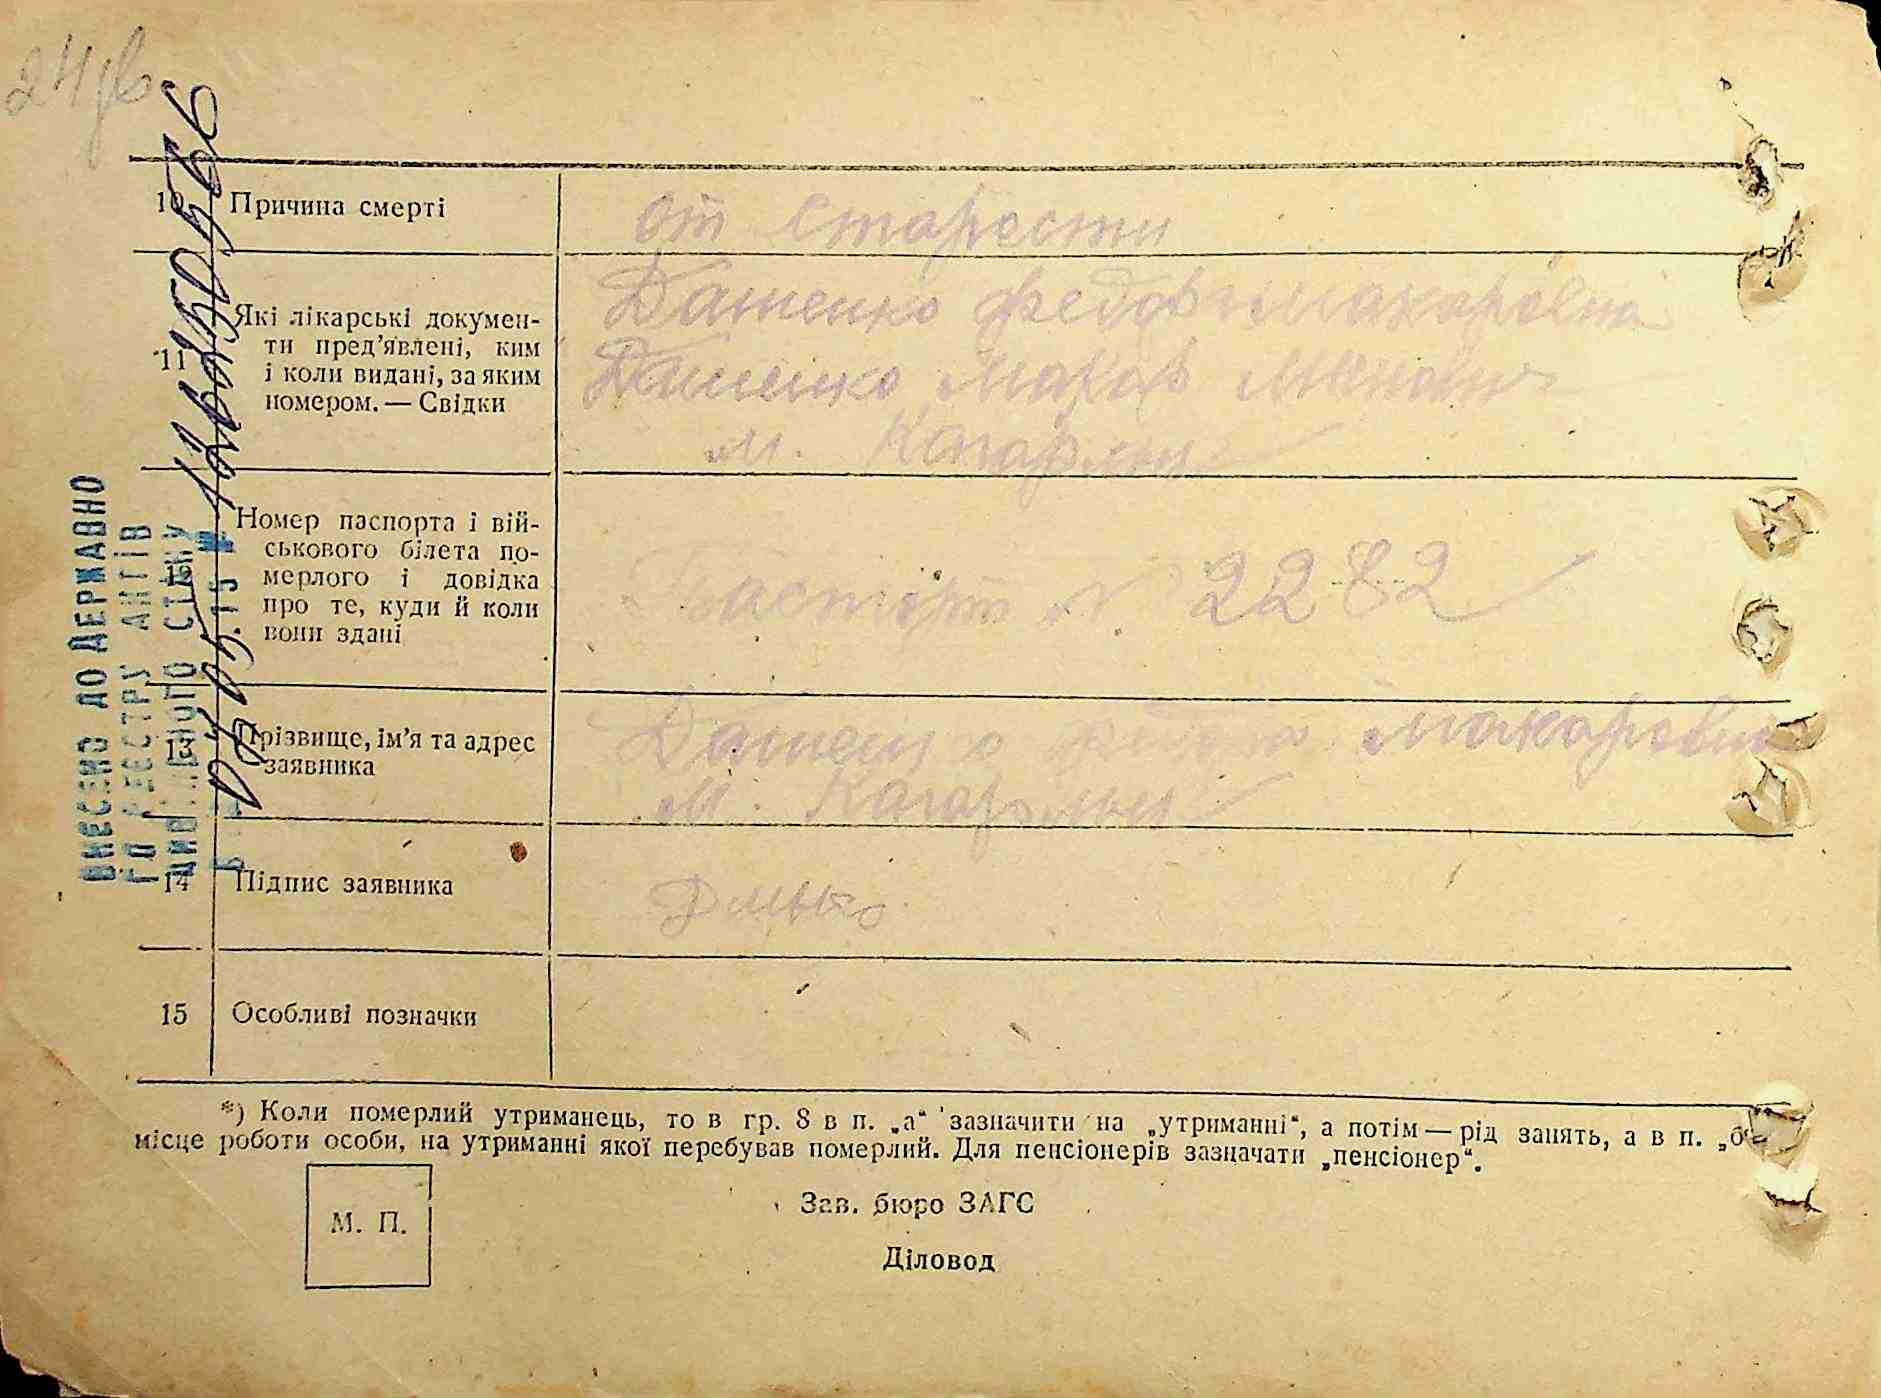 24
10 Причина смерті
от старости
11 Які лікарські докумен-
ти пред'явлені, ким
і коли видані, за яким
номером. — Свідки
Даценко Макаровна
Даценко Макар
м. Кагарлик
12 Номер паспорта і вій-
ськового білета по-
мерлого і довідка
про те, куди й коли
вони здані
Паспорт № 2282
13 Прізвище, ім'я та адрес
заявника
Даценко
м. Кагарлик
14 Підпис заявника
15 Особливі позначки
*) Коли померлий утриманець, то в гр. 8 в п. „а“ зазначити на „утриманні“, а потім — рід занять, а в п. „б“
місце роботи особи, на утриманні якої перебував померлий. Для пенсіонерів зазначати „пенсіонер“.
М. П.
Зав. бюро ЗАГС
Діловод
ВНЕСЕНО ДО ДЕРЖАВНО
ГО РЕЄСТРУ АКТІВ
ЦИВІЛЬНОГО СТАНУ